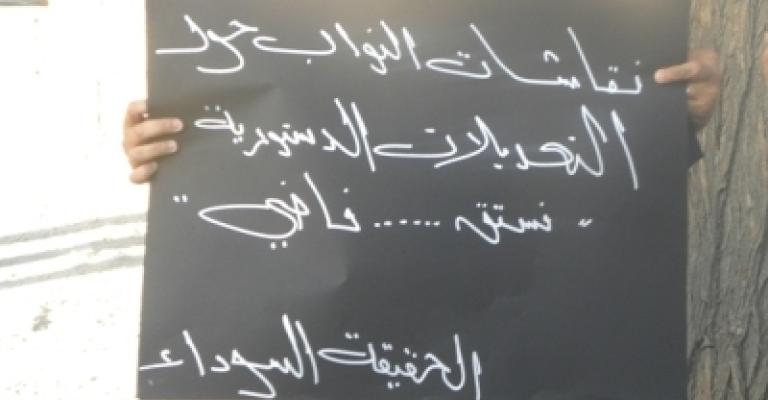 نقاشات النواب حول
التعديلات الدستورية
" نستق ...... فاضي "
الحقيقة السوداء